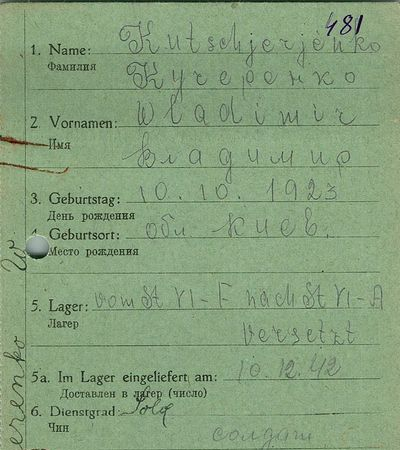 481
1. Name: Kutschjerjenko
Фамилия Кучеренко
2. Vornamen: Wladimir
Имя Владимир
3. Geburtstag: 10.10.1923
День рождения
4. Geburtsort: обл. Киев.
Место рождения
5. Lager: vom St VI-F nach St VI-A
Лагер versetzt
5a. Im Lager eingeliefert am: 10.12.42
Доставлен в лагер (число)
6. Dienstgrad: Sold
Чин солдат